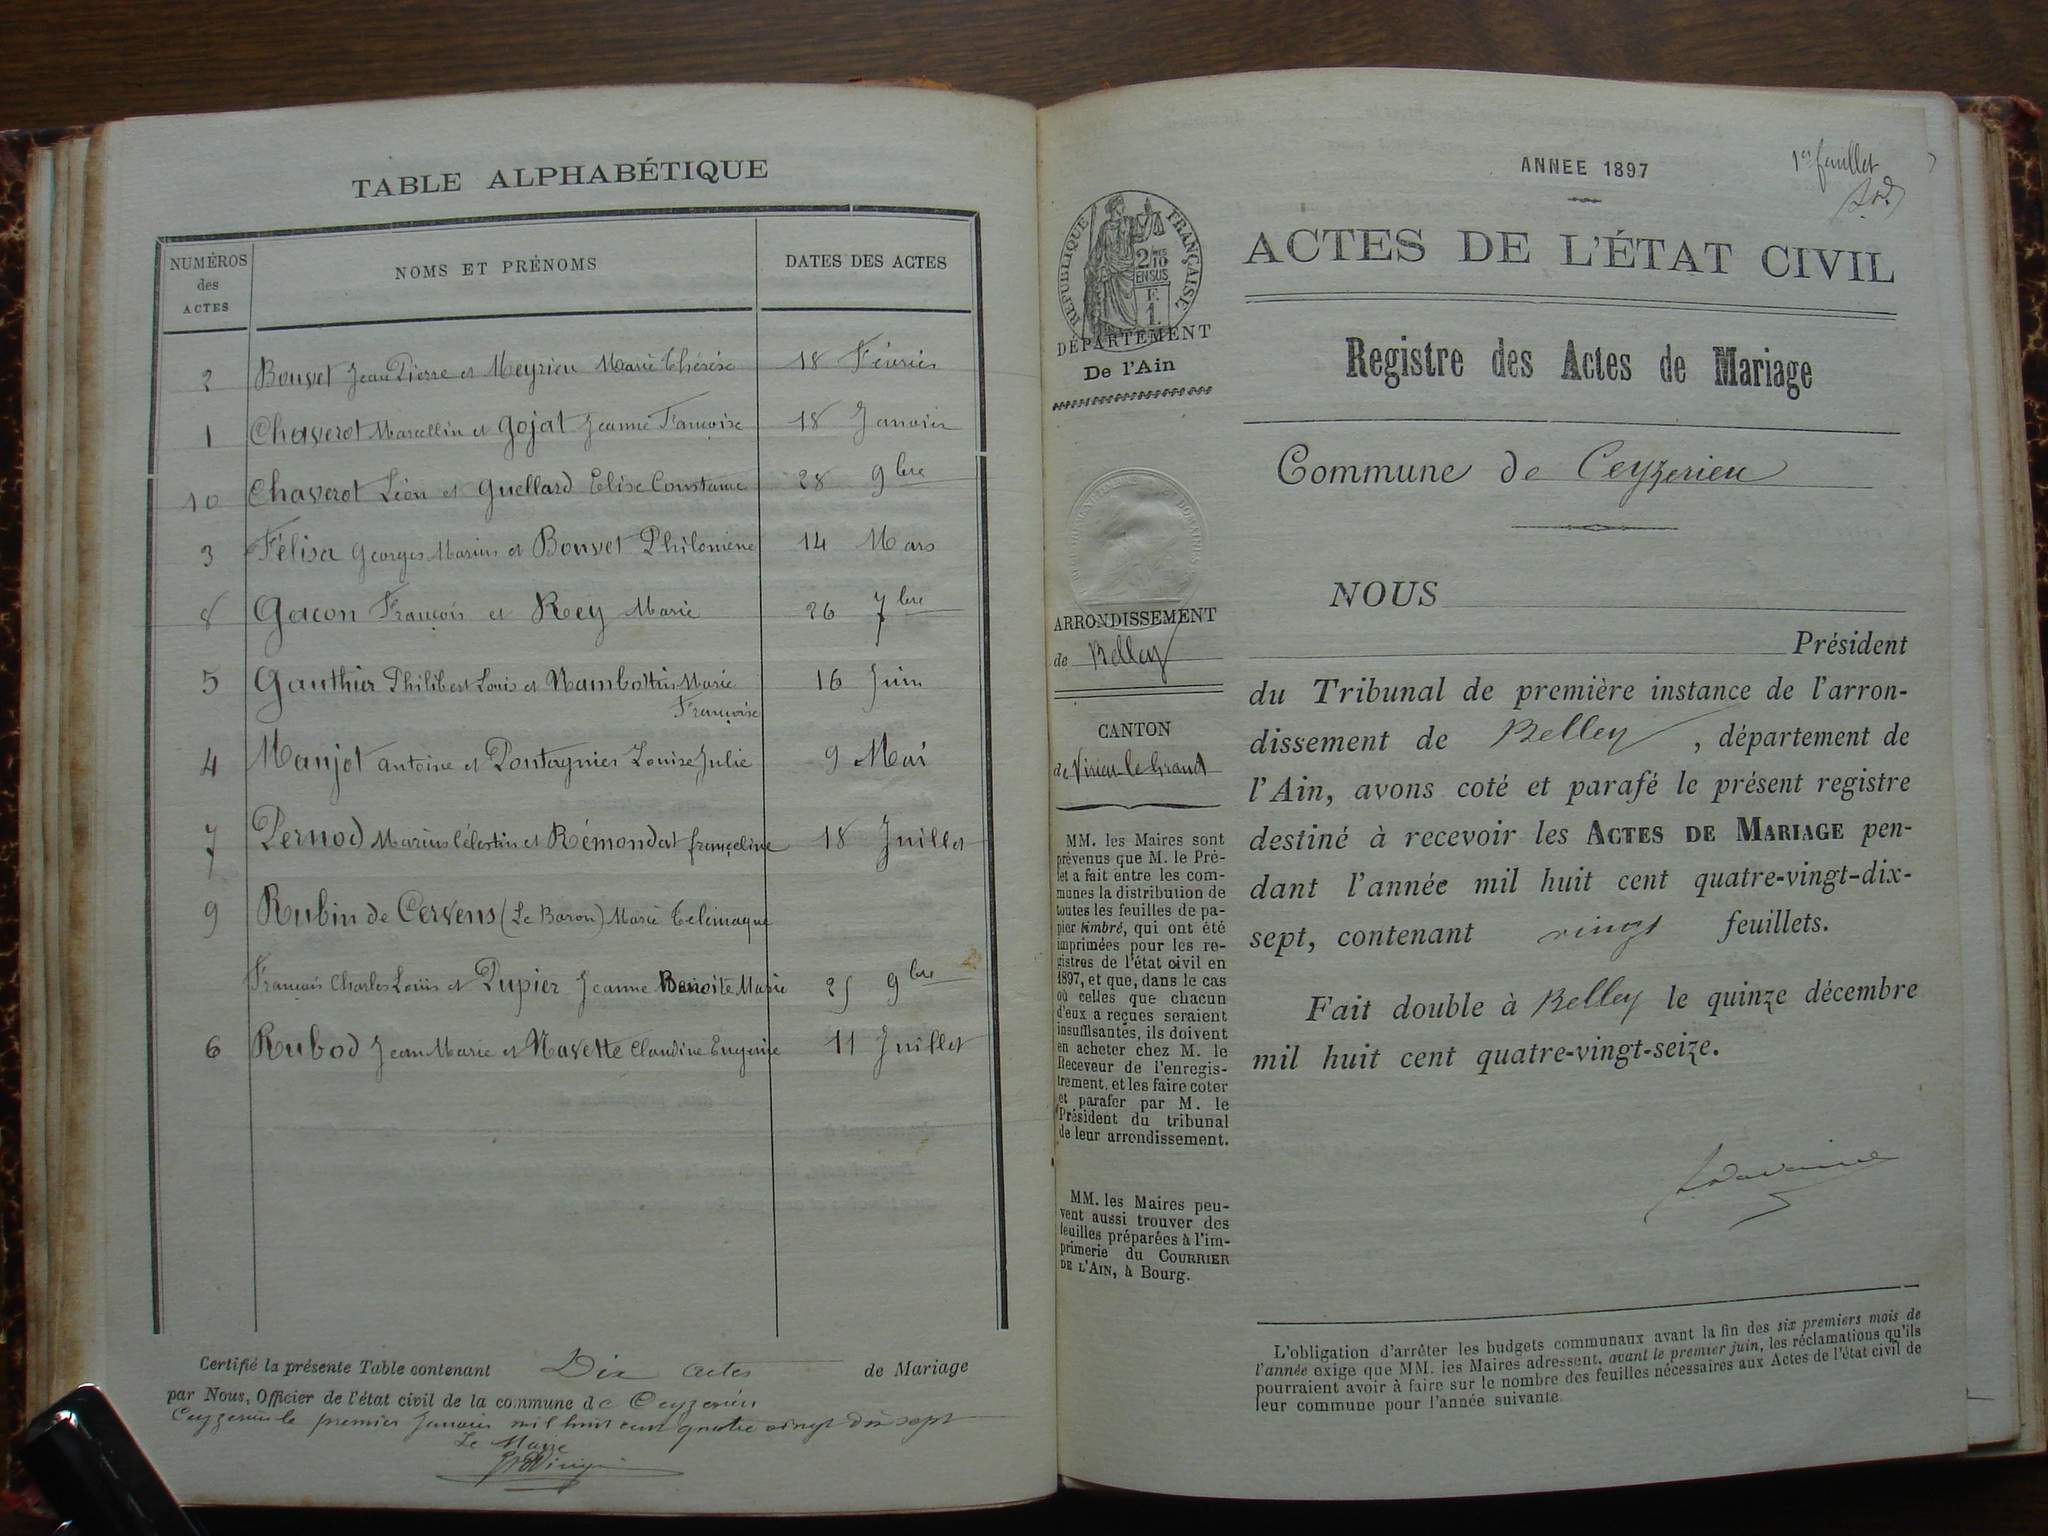 TABLE ALPHABÉTIQUE
NUMÉROS des ACTES
NOMS ET PRÉNOMS
DATES DES ACTES
2 Bouvet Jean Pierre et Meyrieu Marie Thérèse 18 Février
1 Chaverot Marcellin et Gojat Jeanne Françoise 18 Janvier
10 Chaverot Léon et Guellard Elise Constance 28 9bre
3 Félisa Georges Marius et Bouvet Philomène 14 Mars
8 Gacon François et Rey Marie 26 7bre
5 Gauthier Philibert Louis et Nambottin Marie 16 Juin
Françoise
4 Manjot Antoine et Pontagnier Louise Julie 9 Mai
7 Pernod Marius Célestin et Rémondat françeline 18 Juillet
9 Rubin de Cervens (Le Baron) Marie Telémaque
François Charles Louis et Dupier Jeanne Benoite Marie 25 9bre
6 Rubod Jean Marie et Navette Claudine Eugenie 11 Juillet
Certifié la présente Table contenant Dix actes de Mariage
par Nous, Officier de l'état civil de la commune de Ceyzerieu
Ceyzerieu le premier Janvier mil huit cent quatre vingt dix sept
Le Maire
ANNEE 1897
1er feuillet
RÉPUBLIQUE FRANÇAISE
2/10 EN SUS
F. 1.
DÉPARTEMENT
De l'Ain
ARRONDISSEMENT
de Belley
CANTON
de Virieu-le-Grand
MM. les Maires sont
prévenus que M. le Pré-
fet a fait entre les com-
munes la distribution de
toutes les feuilles de pa-
pier timbré, qui ont été
imprimées pour les re-
gistres de l'état civil en
1897, et que, dans le cas
où celles que chacun
d'eux a reçues seraient
insuffisantes, ils doivent
en acheter chez M. le
Receveur de l'enregis-
trement, et les faire coter
et parafer par M. le
Président du tribunal
de leur arrondissement.
MM. les Maires peu-
vent aussi trouver des
feuilles préparées à l'im-
primerie du COURRIER
DE L'AIN, à Bourg.
ACTES DE L'ÉTAT CIVIL
Registre des Actes de Mariage
Commune de Ceyzerieu
NOUS
Président
du Tribunal de première instance de l'arron-
dissement de Belley, département de
l'Ain, avons coté et parafé le présent registre
destiné à recevoir les ACTES DE MARIAGE pen-
dant l'année mil huit cent quatre-vingt-dix-
sept, contenant vingt feuillets.
Fait double à Belley le quinze décembre
mil huit cent quatre-vingt-seize.
L'obligation d'arrêter les budgets communaux avant la fin des six premiers mois de
l'année exige que MM. les Maires adressent, avant le premier juin, les réclamations qu'ils
pourraient avoir à faire sur le nombre des feuilles nécessaires aux Actes de l'état civil de
leur commune pour l'année suivante.